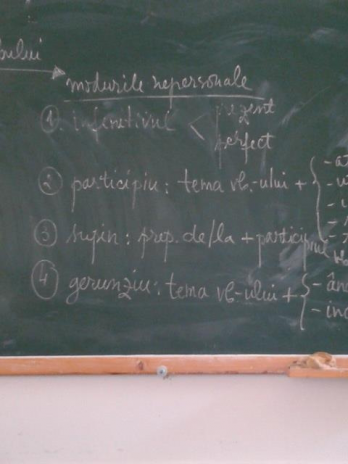 bului
modurile nepersonale
1 infinitivul < prezent
perfect
2 participiu: tema vb-ului + { -at
-u
-i
3 supin: prep. de/la + participiu
4 gerunziu: tema vb-ului + { -ân
-ind